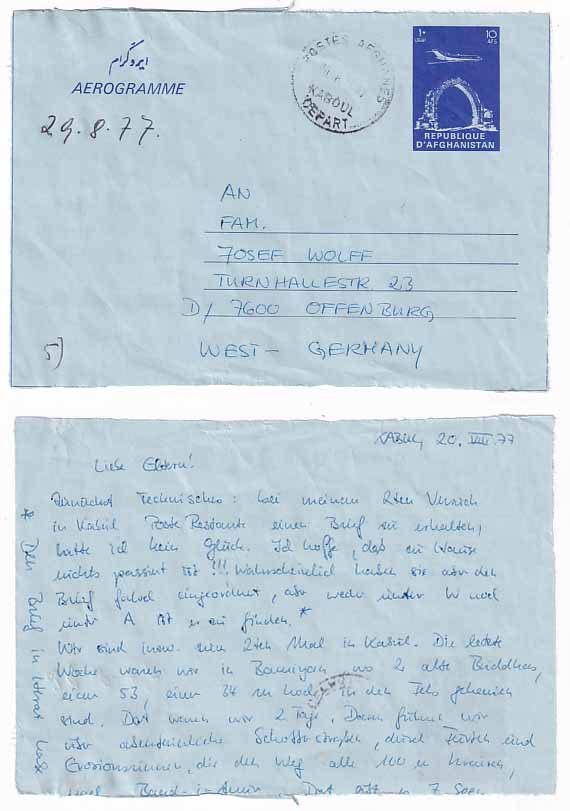 ایروگرام
AEROGRAMME
29.8.77.
POSTES AFGHANES
KABOUL
DEPART
۱۰
10
AFS
REPUBLIQUE
D'AFGHANISTAN
AN
FAM.
JOSEF WOLFF
TURNHALLESTR 23
D/ 7600 OFFENBURG
WEST- GERMANY
5)
KABUL, 20. VIII. 77
Liebe Eltern!
Zunächst Technisches: bei meinem 2ten Versuch
in Kabul Poste Restante einen Brief zu erhalten,
hatte ich kein Glück. Ich hoffe, daß zu Hause
nichts passiert ist!!! Wahrscheinlich haben sie aber den
Brief falsch eingeordnet, aber weder unter W noch
unter A ist er zu finden.*
Wir sind inzw. zum 2ten Mal in Kabul. Die letzte
Woche waren wir in Bamiyan, wo 2 alte Buddhas,
einer 53, einer 34 m hoch in den Fels gehauen
sind. Dort waren wir 2 Tage. Dann fuhren wir
über abenteuerliche Schotterstraßen, durch Furten und
Erosionsrinnen, die den Weg alle 100 m kreuzen,
nach Band-i-Amir. Dort gibt es 7 Seen
* Den Brief in